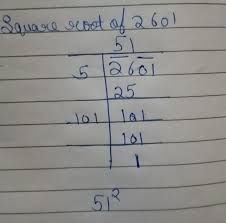 Square root of 2601
51
5 2601
25
101 101
101
1
51²